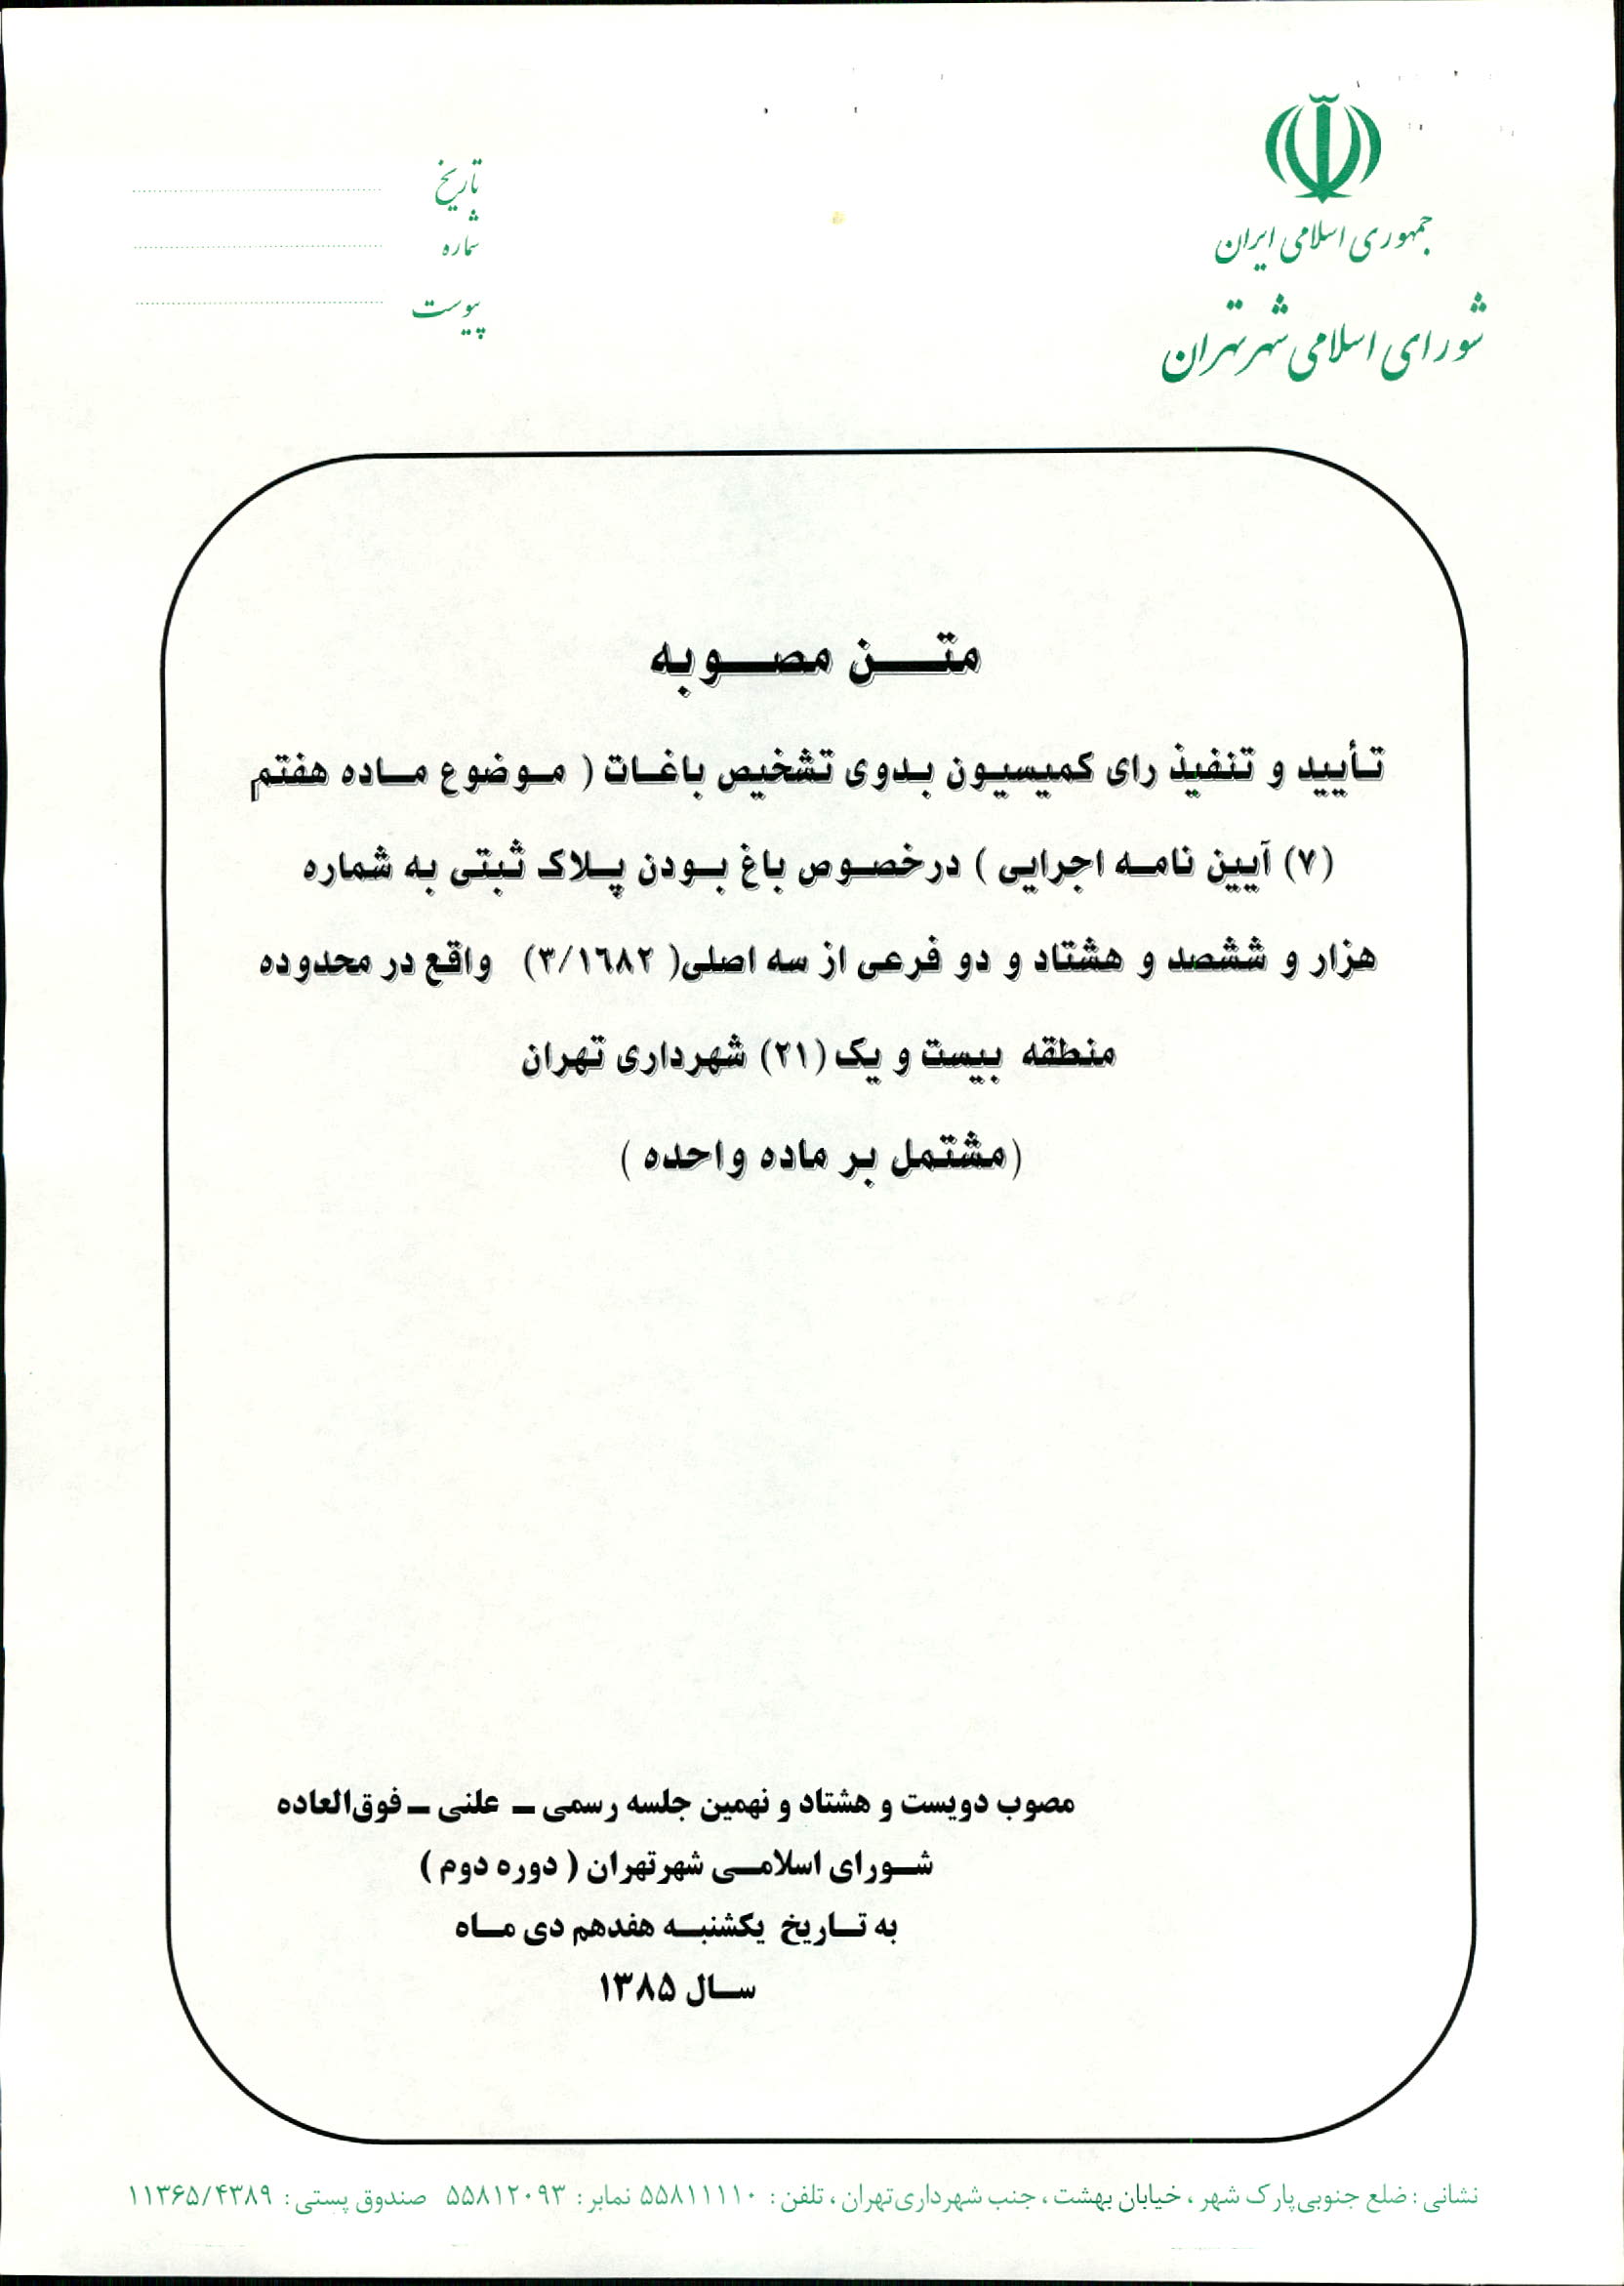 جمهوری اسلامی ایران
شورای اسلامی شهر تهران
تاریخ
شماره
پیوست
متن مصوبه
تأیید و تنفیذ رای کمیسیون بدوی تشخیص باغات ( موضوع ماده هفتم
(۷) آیین نامه اجرایی ) درخصوص باغ بودن پلاک ثبتی به شماره
هزار و ششصد و هشتاد و دو فرعی از سه اصلی( ۳/۱۶۸۲) واقع در محدوده
منطقه بیست و یک (۲۱) شهرداری تهران
(مشتمل بر ماده واحده )
مصوب دویست و هشتاد و نهمین جلسه رسمی – علنی – فوق‌العاده
شورای اسلامی شهرتهران ( دوره دوم )
به تاریخ یکشنبه هفدهم دی ماه
سال ۱۳۸۵
نشانی : ضلع جنوبی پارک شهر ، خیابان بهشت ، جنب شهرداری تهران ، تلفن : ۵۵۸۱۱۱۱۰ نمابر : ۵۵۸۱۲۰۹۳ صندوق پستی : ۱۱۳۶۵/۴۳۸۹